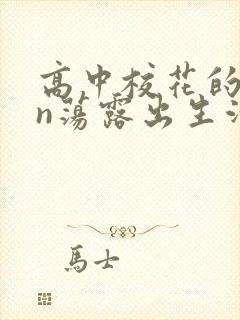 高中校花的
n荡露出生
馬士